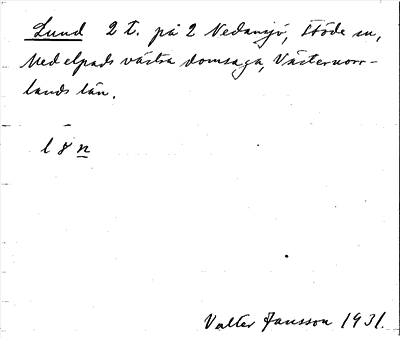 Lund 2 t. på 2 Nedansjö, Stöde sn,
Medelpads västra domsaga, Västernorr-
lands län.
l 8 n
Valter Jansson 1931.